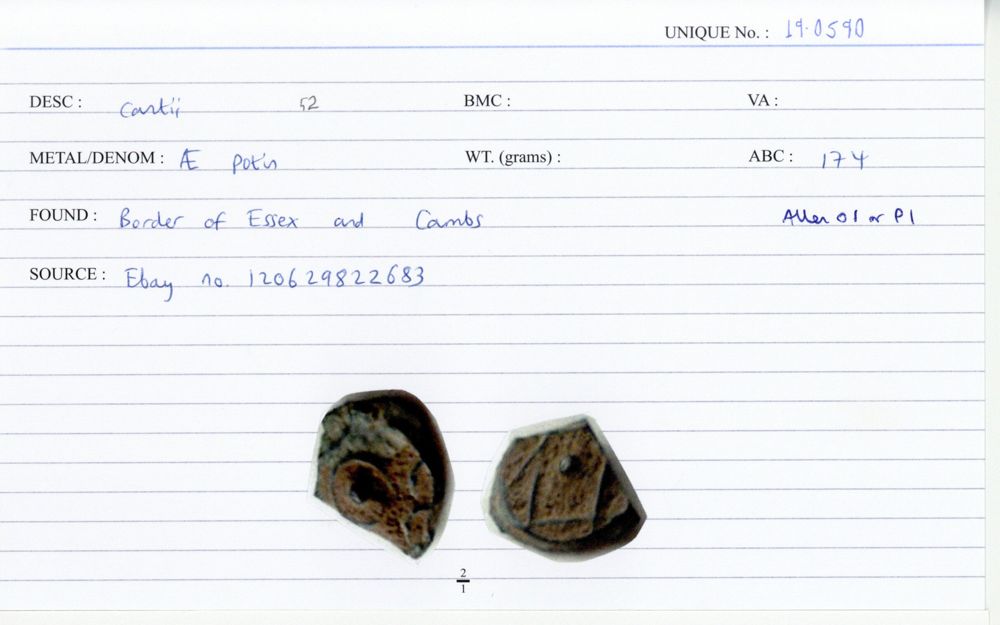 UNIQUE No. : 19.0590
DESC : Cantii 52 BMC : VA :
METAL/DENOM : Æ Potin WT. (grams) : ABC : 174
FOUND : Border of Essex and Cambs Allen O1 or P1
SOURCE : Ebay no. 120629822683
2
1